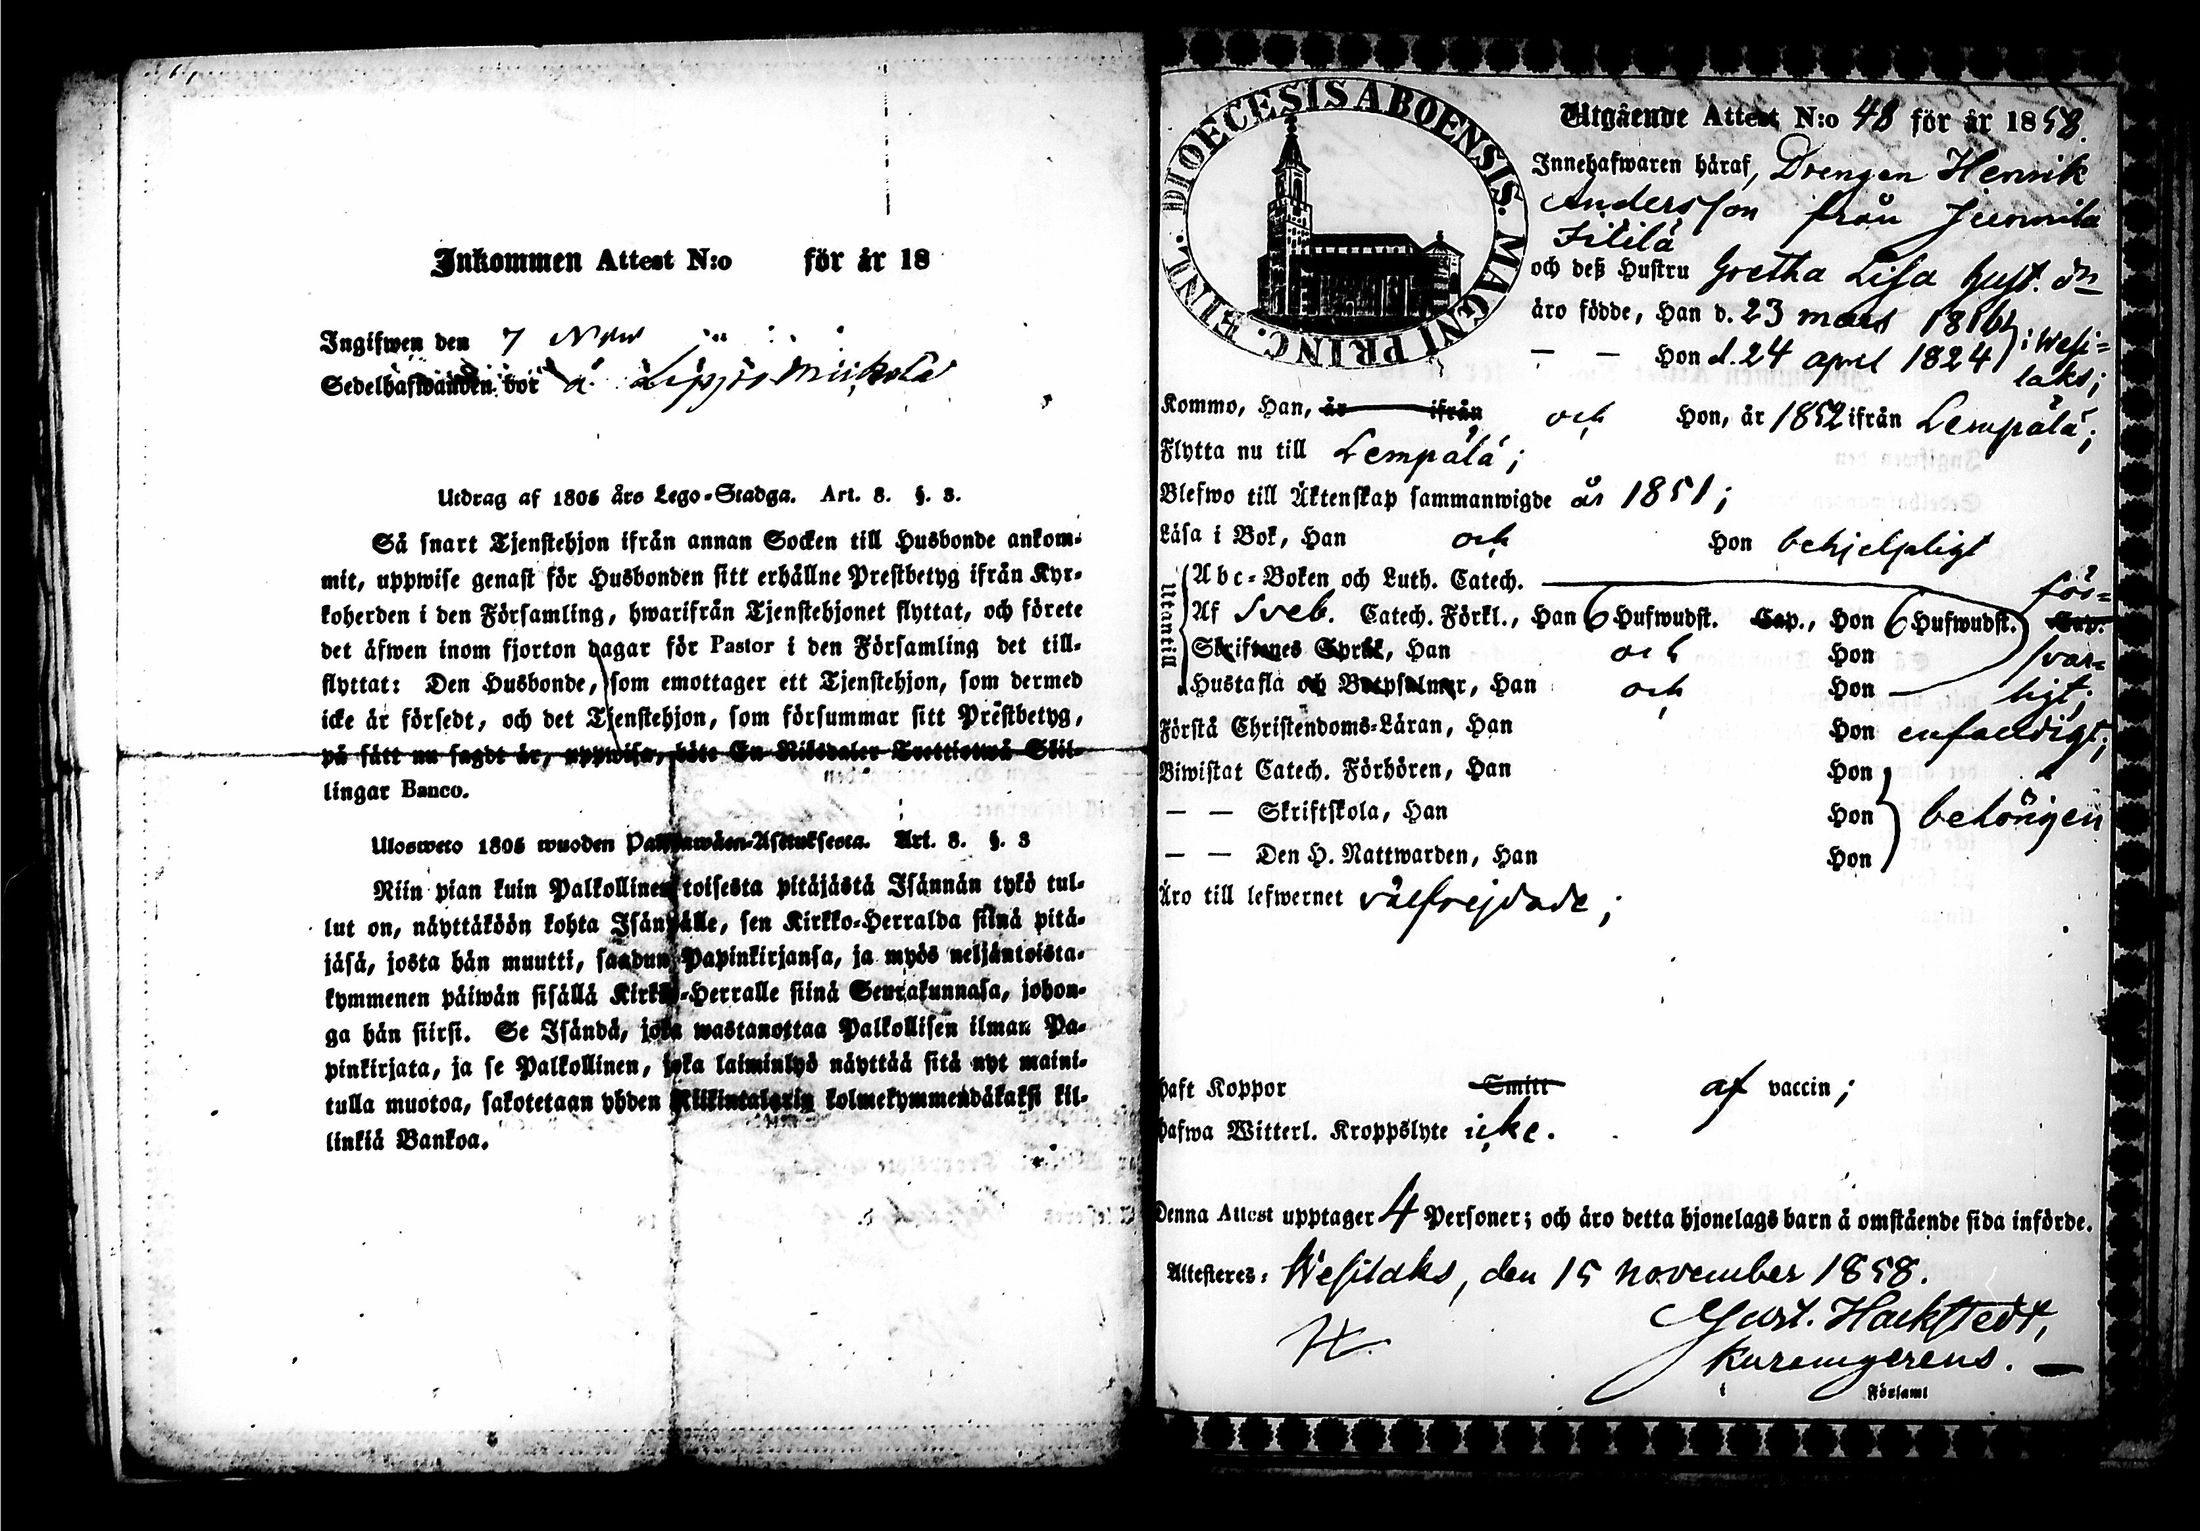 Inkommen Attest N:o för år 18
Ingifwen den 7 Nov
Sedelhafwanden bor å Lippis Miikola
Utdrag af 1805 års Lego-Stadga. Art. 8. §. 3.
Så snart Tjenstehjon ifrån annan Socken till Husbonde ankom-
mit, uppwise genast för Husbonden sitt erhållne Prestbetyg ifrån Kyr-
koherden i den Församling, hwarifrån Tjenstehjonet flyttat, och förete
det äfwen inom fjorton dagar för Pastor i den Församling det till-
flyttat: Den Husbonde, som emottager ett Tjenstehjon, som dermed
icke är försedt, och det Tjenstehjon, som försummar sitt Prestbetyg,
på sätt nu sagdt är, uppwisa, böte En Riksdaler Trettiotwå Skil-
lingar Banco.
Ulosweto 1805 wuoden Palkkawäen-Asetuksesta. Art. 8. §. 3
Niin pian kuin Palkollinen toisesta pitäjästä Isännän tykö tul-
lut on, näyttäköön kohta Isännälle, sen Kirkko-Herralda siinä pitä-
jäsä, josta hän muutti, saadun Papinkirjansa, ja myös neljäntoista-
kymmenen päiwän sisällä Kirkko-Herralle siinä Seurakunnasa, johon-
ga hän siirsi. Se Isändä, joka wastanottaa Palkollisen ilman Pa-
pinkirjata, ja se Palkollinen, joka laiminlyö näyttää sitä nyt maini-
tulla muotoa, sakotetaan yhden Riikintalarin kolmekymmendäkaksi kil-
linkiä Bankoa.
DIOECESIS ABOENSIS. MAGNI PRINC. FINL.
Utgående Attest N:o 48 för år 1858.
Innehafwaren häraf, Drengen Henrik
Andersson från Junnila
Fililä
och deß Hustru Gretha Lisa Gust. dr
äro födde, Han d. 23 mars 1816 i Wesi-
— — Hon d. 24 april 1824 laks;
Kommo, Han, år ifrån och Hon, år 1852 ifrån Lempälä;
Flytta nu till Lempälä;
Blefwo till Äktenskap sammanwigde år 1851;
Läsa i Bok, Han och Hon behjelpligt
Utantill
Abc-Boken och Luth. Catech. för-
Af Sveb. Catech. Förkl., Han 6 Hufwudst. Cap., Hon 6 Hufwudst. Cap.
Skriftenes Språk, Han och Hon svar-
Hustafla och Botpsalmer, Han och Hon ligt;
Förstå Christendoms-Läran, Han Hon enfaldigt;
Biwistat Catech. Förhören, Han Hon
— — Skriftskola, Han Hon behörigen
— — Den H. Nattwarden, Han Hon
Äro till lefwernet välfrejdade;
haft Koppor Smitt af vaccin;
hafwa Witterl. Kroppslyte icke.
Denna Attest upptager 4 Personer; och äro detta hjonelags barn å omstående sida införde.
Attesteras: Wesilaks, den 15 november 1858.
Gust. Hackstedt,
kuramgerens.
i Församl